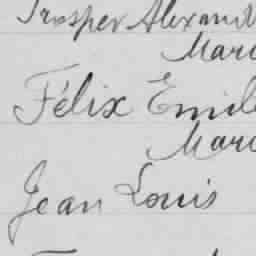 Prosper Alexand
Marc
Félix Emil
Marc
Jean Louis